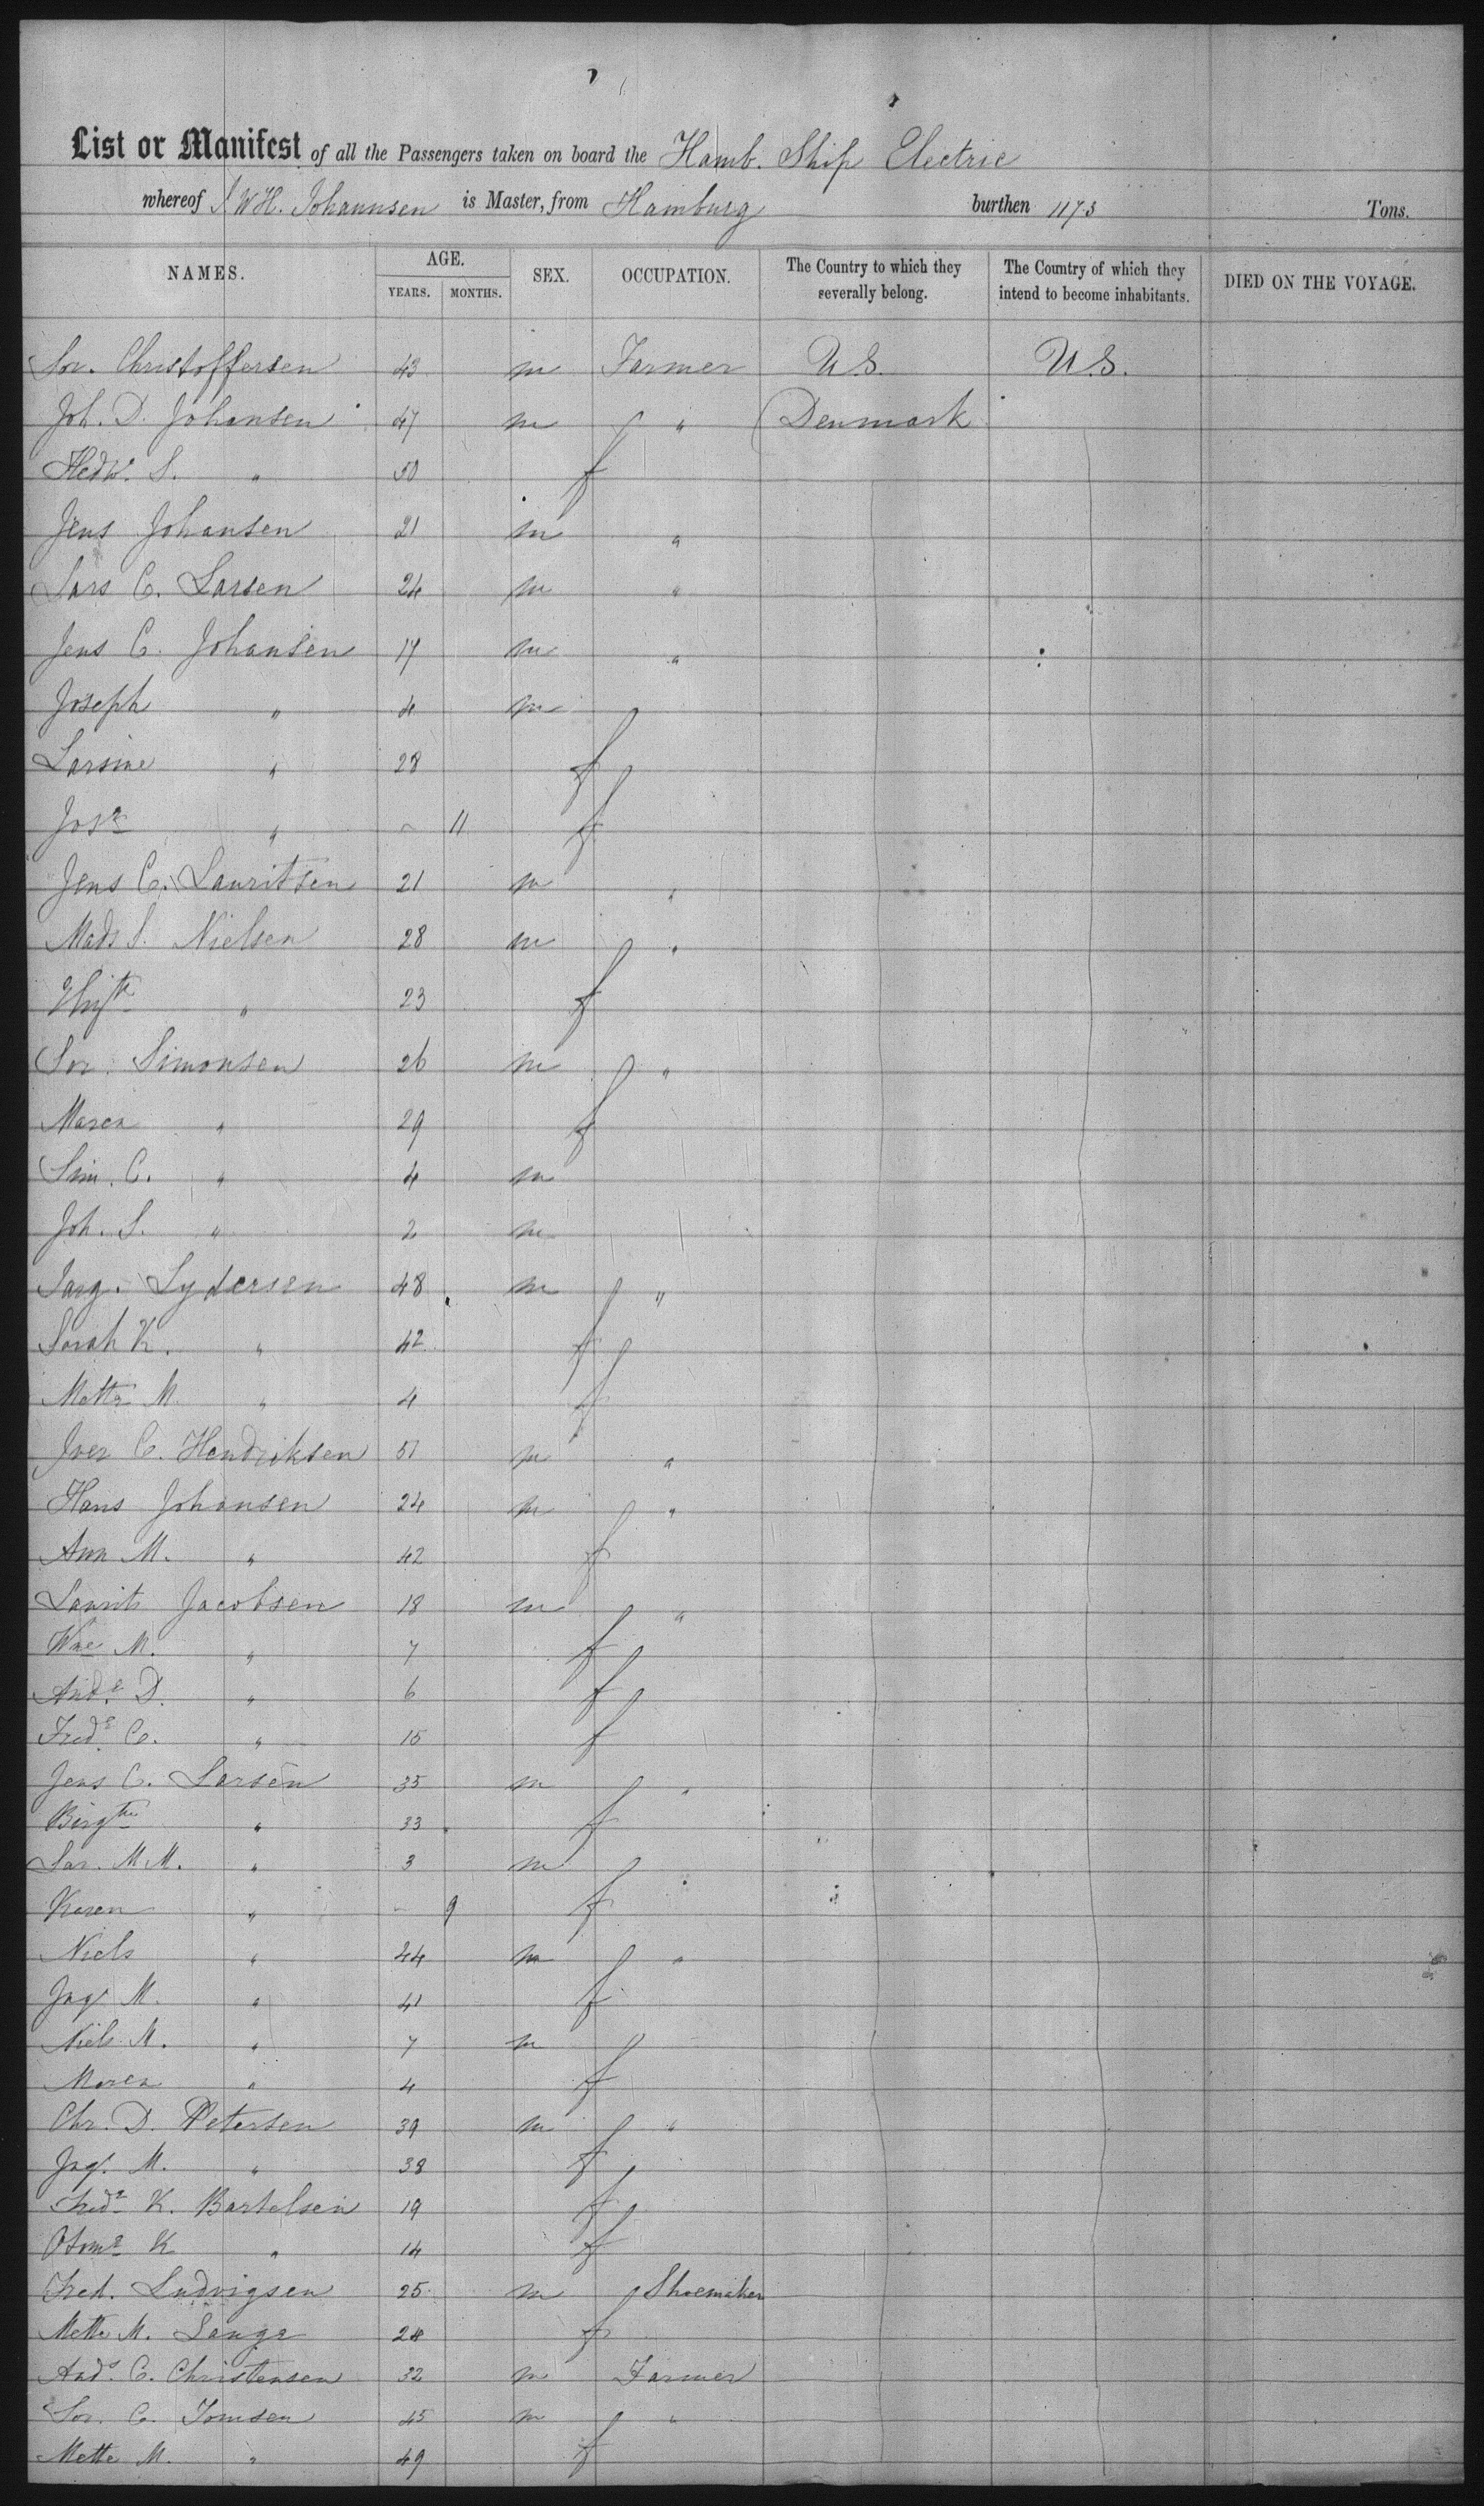 List or Manifest of all the Passengers taken on board the Hamb. Ship Electric
whereof J. W H. Johannsen is Master, from Hamburg burthen 1173 Tons.
NAMES. AGE. YEARS. MONTHS. SEX. OCCUPATION. The Country to which they severally belong. The Country of which they intend to become inhabitants. DIED ON THE VOYAGE.
Sor. Christoffersen 43 m Farmer U.S. U.S.
Joh. D. Johansen 47 m " Denmark
Hedw. S. " 50 f
Jens Johansen 21 m "
Lars C. Larsen 24 m "
Jens C. Johansen 17 m "
Joseph " 4 m
Larsine " 28 f
Jose " ~ 11 f
Jens C. Lauritsen 21 m "
Mads S. Nielsen 28 m "
" 23 f
Sor. Simonsen 26 m "
Maren " 29 f
Sim. C. " 4 m
Joh. S. " 2 m
Jorg. Lydersen 48 m "
Sarah K. " 42 f
Mette M " 4 f
Iver C. Hendriksen 51 m "
Hans Johansen 24 m "
Ann M. " 42 f
Laurits Jacobsen 18 m "
Wne M. " 7 f
Ande D. " 6 f
Frede C. " 15 f
Jens C. Larsen 35 m "
Birgthe " 33 f
Lar. M M. " 3 m
Karen " ~ 9 f
Niels " 44 m "
Ing. M. " 41 f
Niels M. " 7 m
Maren " 4 f
Chr. D. Petersen 39 m "
Ing. M. " 38 f
Frede K. Bartelsen 19 f
K " 14 f
Fred. Ludvigsen 25 m Shoemaker
Mette M. Lange 24 f
Ands. C. Christensen 32 m Farmer
Sor. C. Tomsen 45 m "
Mette M. " 49 f